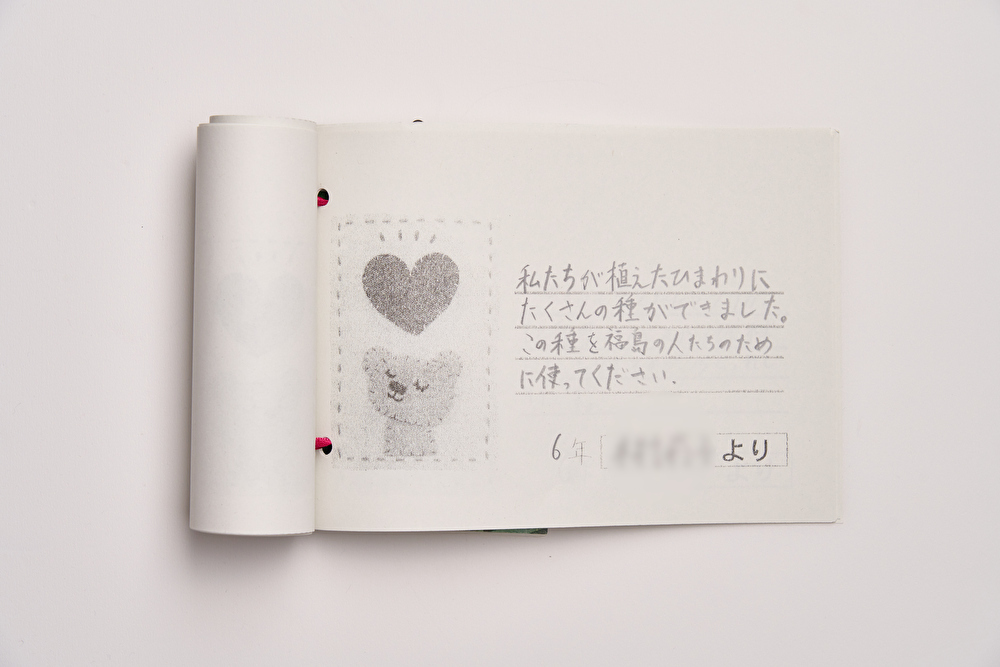 私たちが植えたひまわりに
たくさんの種ができました。
この種を福島の人たちのため
に使ってください.
6年 より